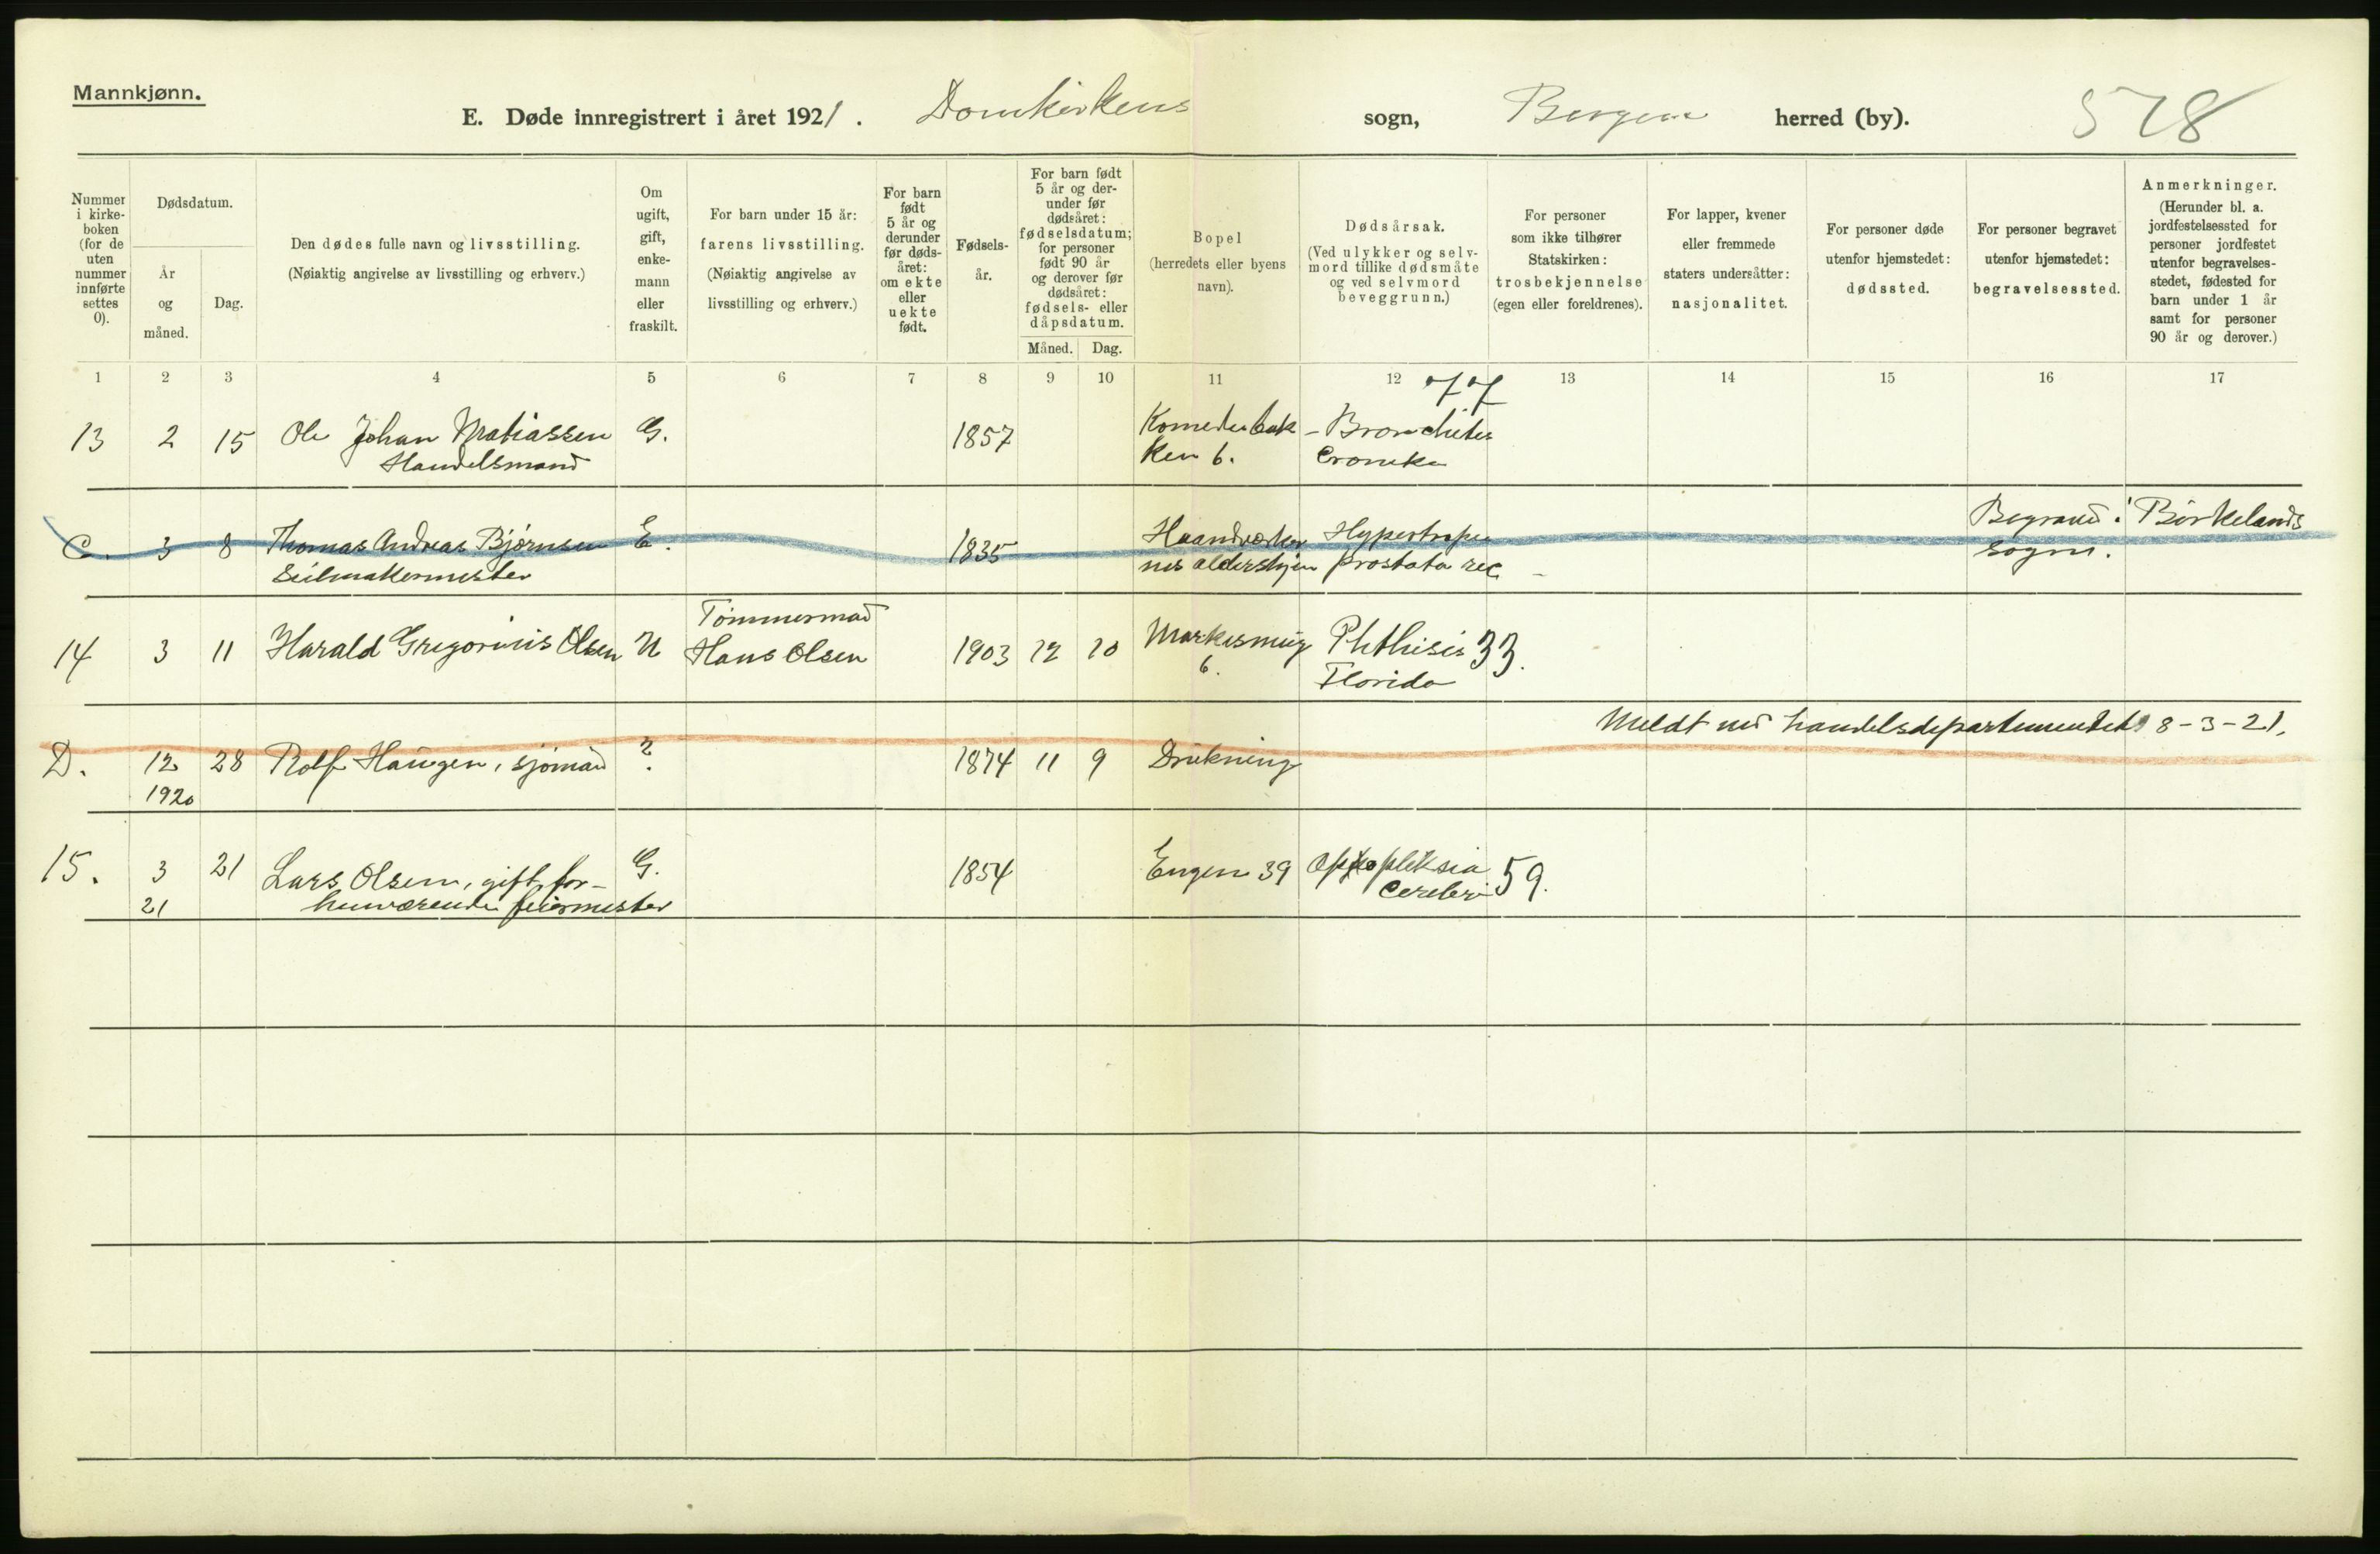 Mannkjønn.
E. Døde innregistrert i året 1921. Domkirkens sogn, Bergen herred (by). 578
Nummer i kirke-boken (for de uten nummer innførte settes 0).
Dødsdatum.
År og måned.
Dag.
Den dødes fulle navn og livsstilling.
(Nøiaktig angivelse av livsstilling og erhverv.)
Om ugift, gift, enke-mann eller fraskilt.
For barn under 15 år:
farens livsstilling.
(Nøiaktig angivelse av livsstilling og erhverv.)
For barn født 5 år og derunder før døds-året: om ekte eller uekte født.
Fødsels-år.
For barn født 5 år og der-under før dødsåret: fødselsdatum; for personer født 90 år og derover før dødsåret: fødsels- eller dåpsdatum.
Måned. Dag.
Bopel
(herredets eller byens navn).
Dødsårsak.
(Ved ulykker og selv-mord tillike dødsmåte og ved selvmord beveggrunn.)
For personer som ikke tilhører Statskirken: trosbekjennelse (egen eller foreldrenes).
For lapper, kvener eller fremmede staters undersåtter: nasjonalitet.
For personer døde utenfor hjemstedet: dødssted.
For personer begravet utenfor hjemstedet: begravelsessted.
Anmerkninger.
(Herunder bl. a. jordfestelsessted for personer jordfestet utenfor begravelses-stedet, fødested for barn under 1 år samt for personer 90 år og derover.)
1 2 3 4 5 6 7 8 9 10 11 12 13 14 15 16 17
77
13 2 15 Ole Johan Matiassen G. 1857 Komediebak- Bronchites
Handelsmand ken 6. Cronika
C. 3 8 Thomas Andreas Bjørnsen E. 1835 Haandværker Hypertrofia Begravet i Birkelands
Seilmakermester nes aldershjem prostata sogn.
14 3 11 Harald Gregorius Olsen U Tømmermad Hans Olsen 1903 12 20 Markesmug 6. Phthisis 33.
Florida
Meldt ved handelsdepartementet 8-3-21.
D. 12 28 Rolf Haugen, sjømad ? 1874 11 9 Drukning
1920
15. 3 21 Lars Olsen, gift for- G. 1854 Engen 39 Appopleksia 59.
21 henværende feiermester Cerebri